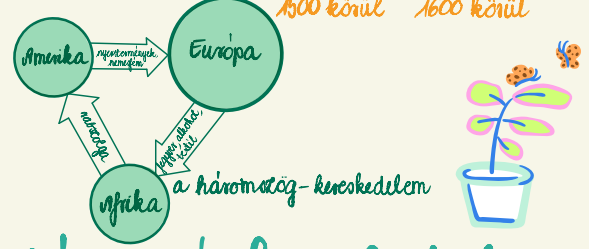 1500 körül 1600 körül
Amerika
nyerstermények,
nemesfém
Európa
fegyver, alkohol,
textil
rabszolga
Afrika
a háromszög-kereskedelem